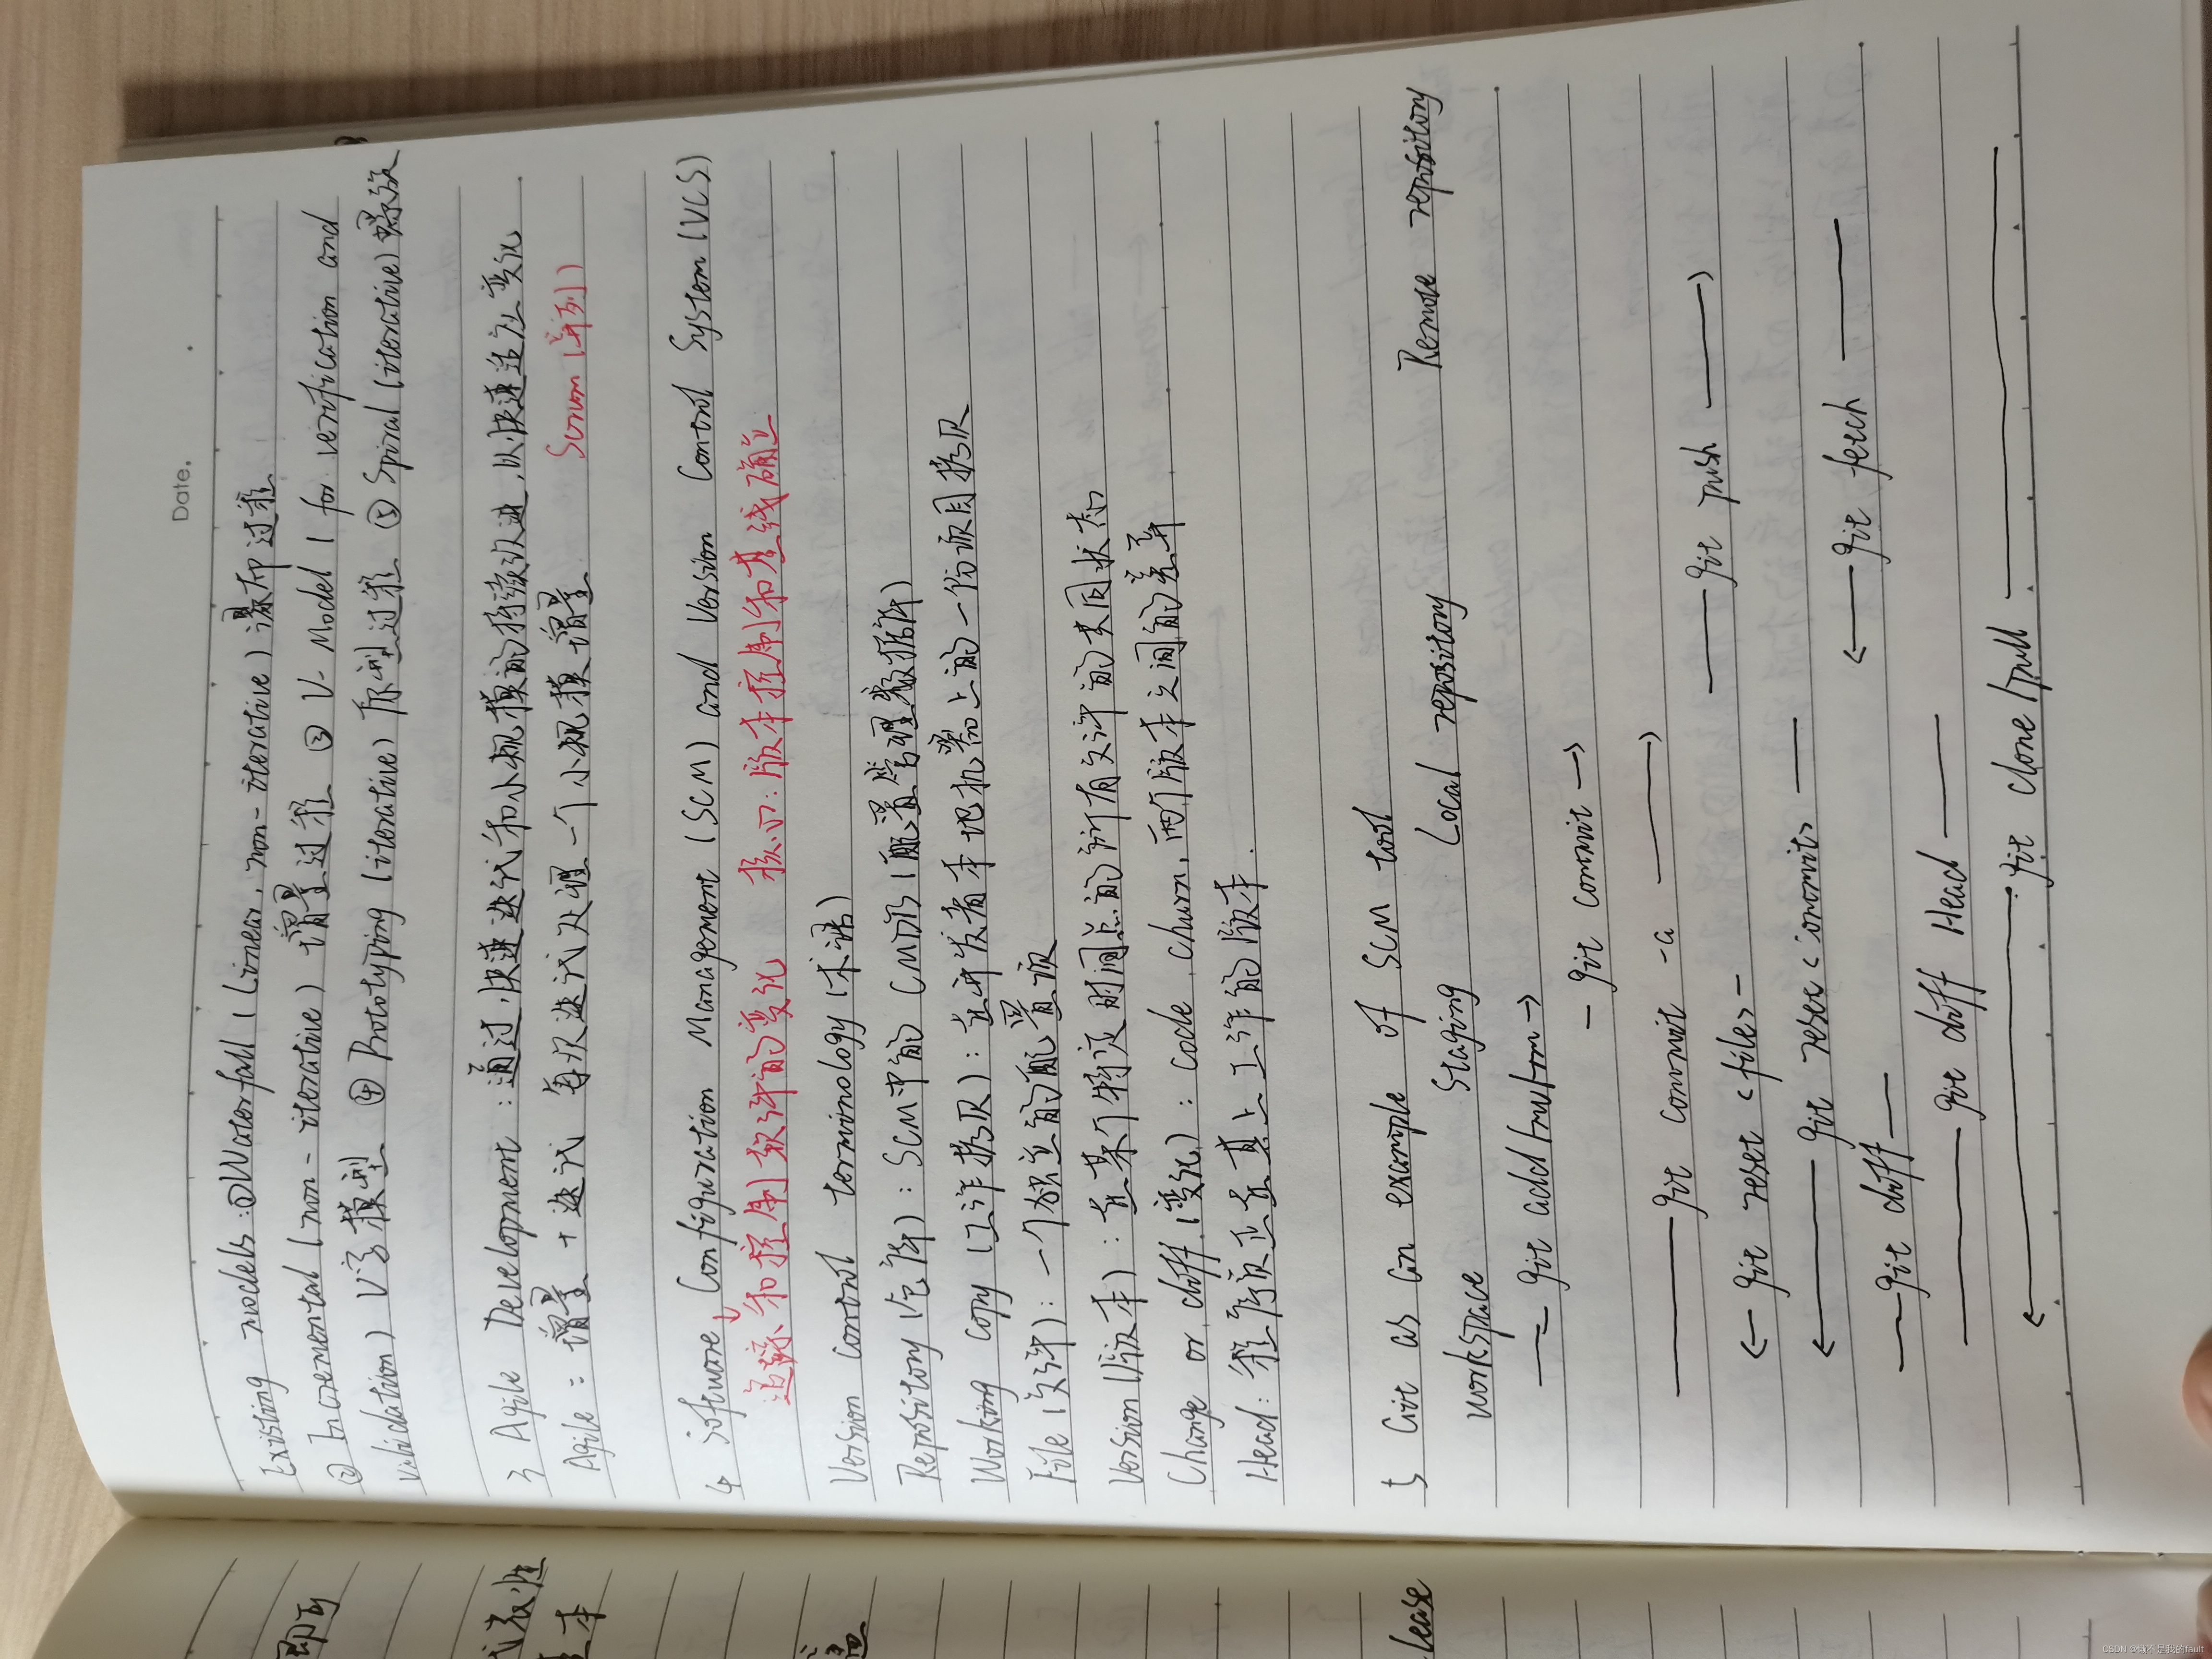 Date.
Existing models: ① Waterfall (Linear, non-iterative) 瀑布过程
② Incremental (non-iterative) 增量过程 ③ V-Model (for verification and
validation) V字模型 ④ Prototyping (iterative) 原型过程 ⑤ Spiral (iterative) 螺旋
3 Agile Development: 通过快速迭代和小规模的持续改进,以快速适应变化
Agile = 增量 + 迭代 每次迭代处理一个小规模增量 Scrum (系列)
4 Software Configuration Management (SCM) and Version Control System (VCS)
追踪和控制软件的变化 核心:版本控制和基线确立
Version control terminology (术语)
Repository (仓库): SCM中的CMDB (配置管理数据库)
Working copy (工作拷贝): 在开发者本地机器上的一份项目拷贝
File (文件): 一个独立的配置项
Version (版本): 在某个特定时间点的所有文件的共同状态
Change or diff (变化): code churn, 两个版本之间的差异
Head: 程序员正在其上工作的版本.
5 Git as an example of SCM tool
workspace Staging Local repository Remote repository
git add/mv/rm →
git commit →
git commit -a →
git push →
← git reset <file>
← git reset <commit>
← git fetch
git diff
git diff Head
← git clone/pull
即可
本
lease
CSDN @懒不是我的fault